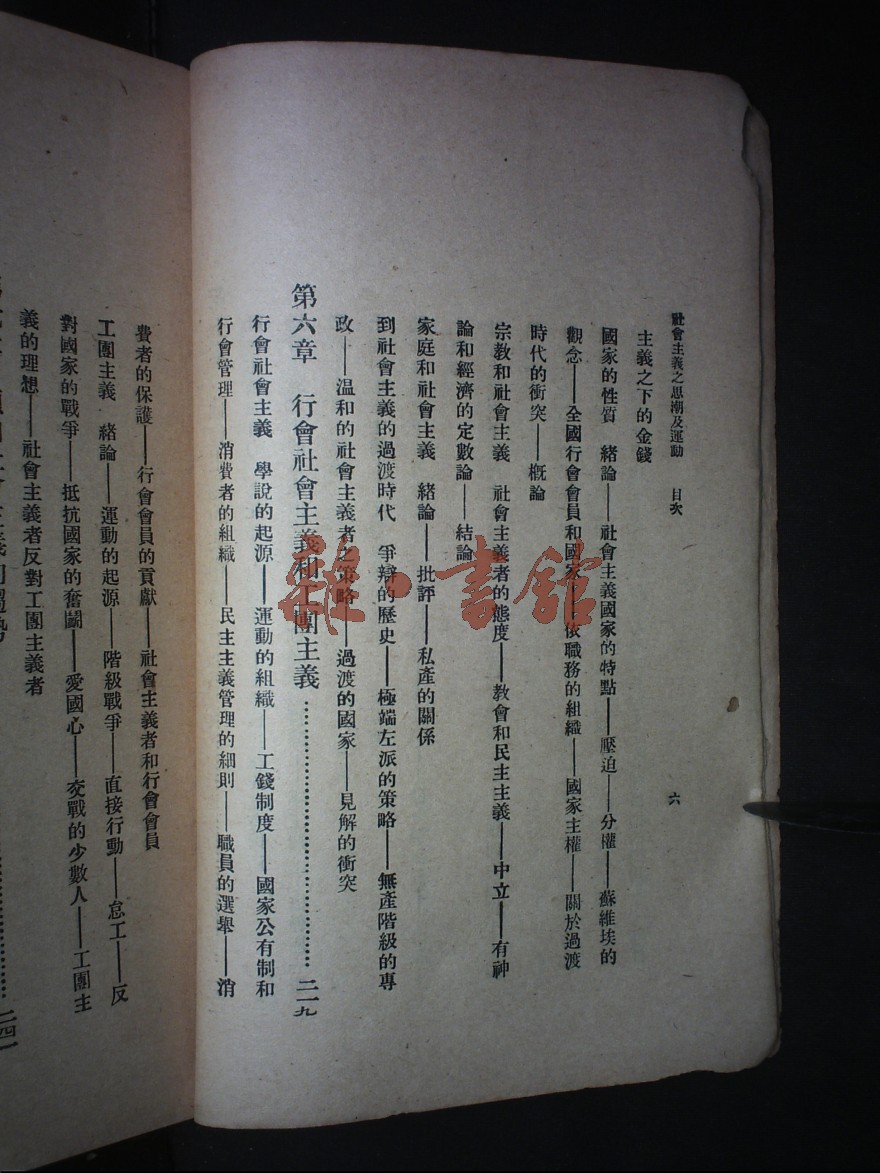 社會主義之思潮及運動　目次
六
主義之下的金錢
國家的性質　緒論——社會主義國家的特點——壓迫——分權——蘇維埃的
觀念——全國行會會員和國家——依職務的組織——國家主權——關於過渡
時代的衝突——概論
宗教和社會主義　社會主義者的態度——教會和民主主義——中立——有神
論和經濟的定數論——結論
家庭和社會主義　緒論——批評——私產的關係
到社會主義的過渡時代　爭辯的歷史——極端左派的策略——無產階級的專
政——温和的社會主義者之策略——過渡的國家——見解的衝突
第六章　行會社會主義和工團主義……………………二一九
行會社會主義　學說的起源——運動的組織——工錢制度——國家公有制和
行會管理——消費者的組織——民主主義管理的細則——職員的選舉——消
費者的保護——行會會員的貢獻——社會主義者和行會會員
工團主義　緒論——運動的起源——階級戰爭——直接行動——怠工——反
對國家的戰爭——抵抗國家的奮鬭——愛國心——交戰的少數人——工團主
義的理想——社會主義者反對工團主義者
二四一
雜·書館